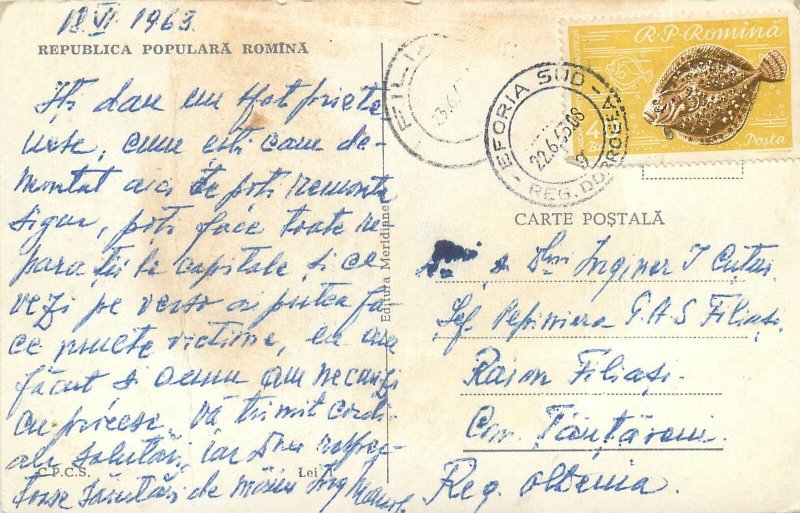 18 VI 1963
REPUBLICA POPULARĂ ROMÎNĂ
Îți dau un sfat priete
nesc, cum ești cam de-
montat aici te poți remonta
sigur, poți face toate re-
parațiile capitale și ce
vezi pe verso ai putea fa-
ce multe victime, eu am
făcut și acum am necazuri
cu procese. Vă trimit cordi-
ale salutări, iar Dnei respec-
toase sărutări de mâini Ing
C.P.C.S.
Lei 1
Editura Meridiane
EFORIA SUD
22.6.63.08
REG. DOBROGEA
FILI
23.6.6
R.P. Romînă
Posta
CARTE POȘTALĂ
Dlui Inginer I
Șef Pepiniera G.A.S Filiași
Raion Filiași.
Com. Țânțăreni
Reg. Oltenia.